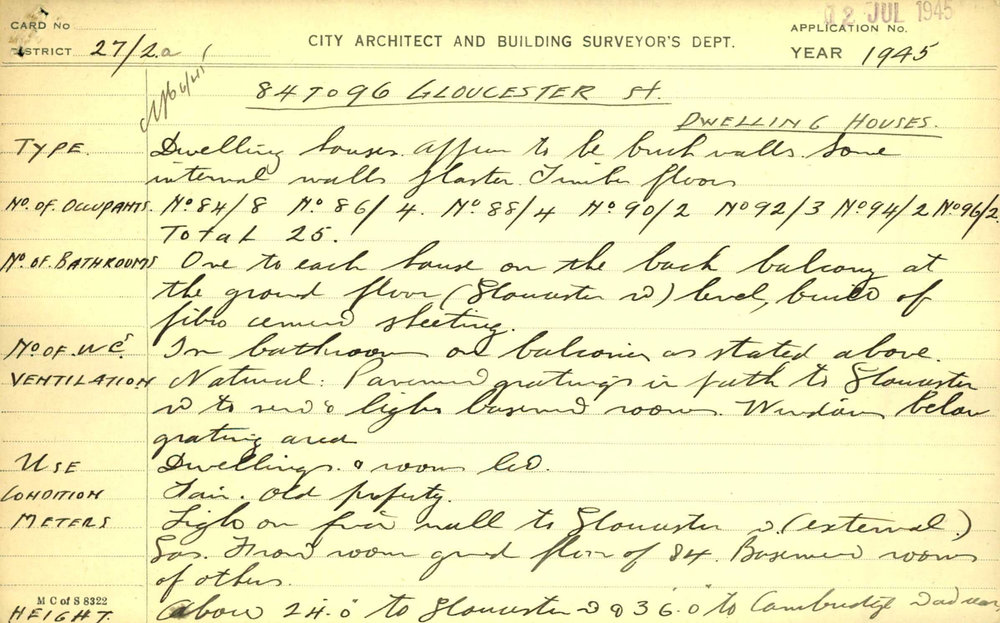 12 JUL 1945
CARD No
APPLICATION No.
DISTRICT 27/2a
CITY ARCHITECT AND BUILDING SURVEYOR'S DEPT.
YEAR 1945
84 TO 96 GLOUCESTER St.
DWELLING HOUSES.
TYPE. Dwelling houses. Appear to be brick walls. Some
internal walls plaster. Timber floors
No. OF OCCUPANTS. No 84/8 No 86/4. No 88/4 No 90/2 No 92/3 No 94/2 No 96/2.
TOTAL 25.
No. OF BATHROOMS One to each house on the back balcony at
the ground floor (Gloucester St) level, build of
fibro cement sheeting.
No. OF W.Cs. In bathroom on balconies as stated above.
VENTILATION Natural: Pavement gratings in path to Gloucester
St to vent & light basement rooms. Windows below
grating area
USE Dwellings & rooms let.
CONDITION Fair. Old property.
METERS Light on front wall to Gloucester St. (external.)
Gas. Front room grnd floor of 84. Basement rooms
of others.
M C of S 8322
HEIGHT. Above 24.0" to Gloucester St & 36.0" to Cambridge St at rear